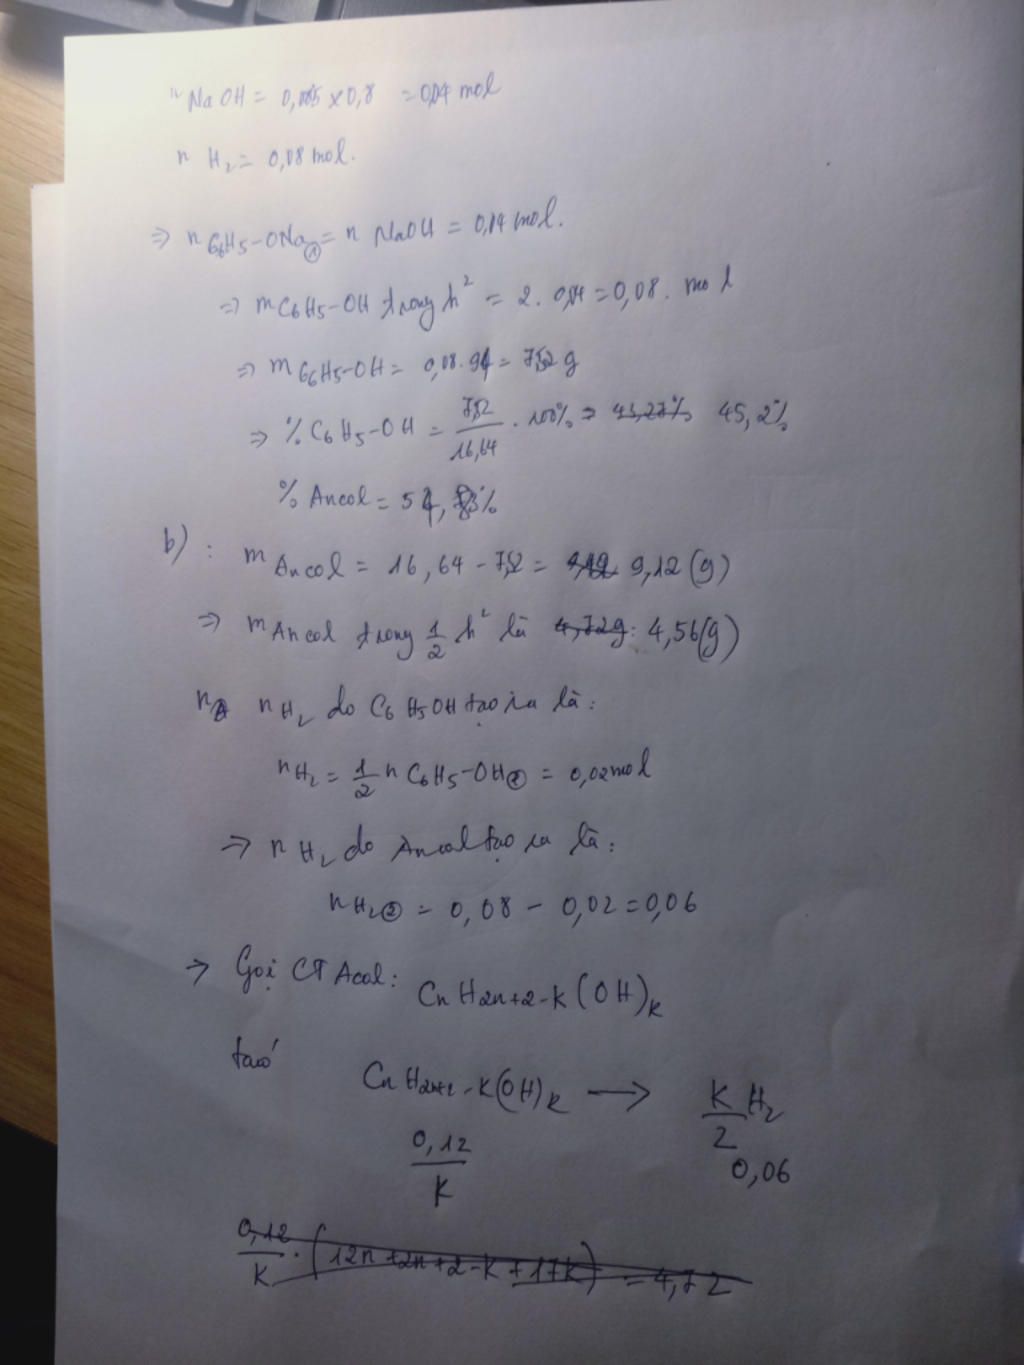 n NaOH = 0,05 x 0,8 = 0,04 mol
n H2 = 0,08 mol.
=> n C6H5-ONa① = n NaOH = 0,04 mol.
=> m C6H5-OH trong h² = 2. 0,04 = 0,08. mol
=> m C6H5-OH = 0,08.94 = 7,52 g
=> % C6H5-OH = 7,52/16,64 . 100% = 43,27% 45,2%
% Ancol = 54,8%
b) : m Ancol = 16,64 - 7,52 = 9,12 (g)
=> m Ancol trong 1/2 h² là 4,72g: 4,56(g)
n H2 do C6H5OH tạo ra là:
n H2 = 1/2 n C6H5-OH② = 0,02 mol
=> n H2 do Ancol tạo ra là:
n H2② = 0,08 - 0,02 = 0,06
=> Gọi CT Acol: CnH2n+2-k(OH)k
taco'
CnH2n+2-k(OH)k → k/2 H2
0,12/k 0,06
0,12/k . (12n+2n+2-k+17k) = 4,72